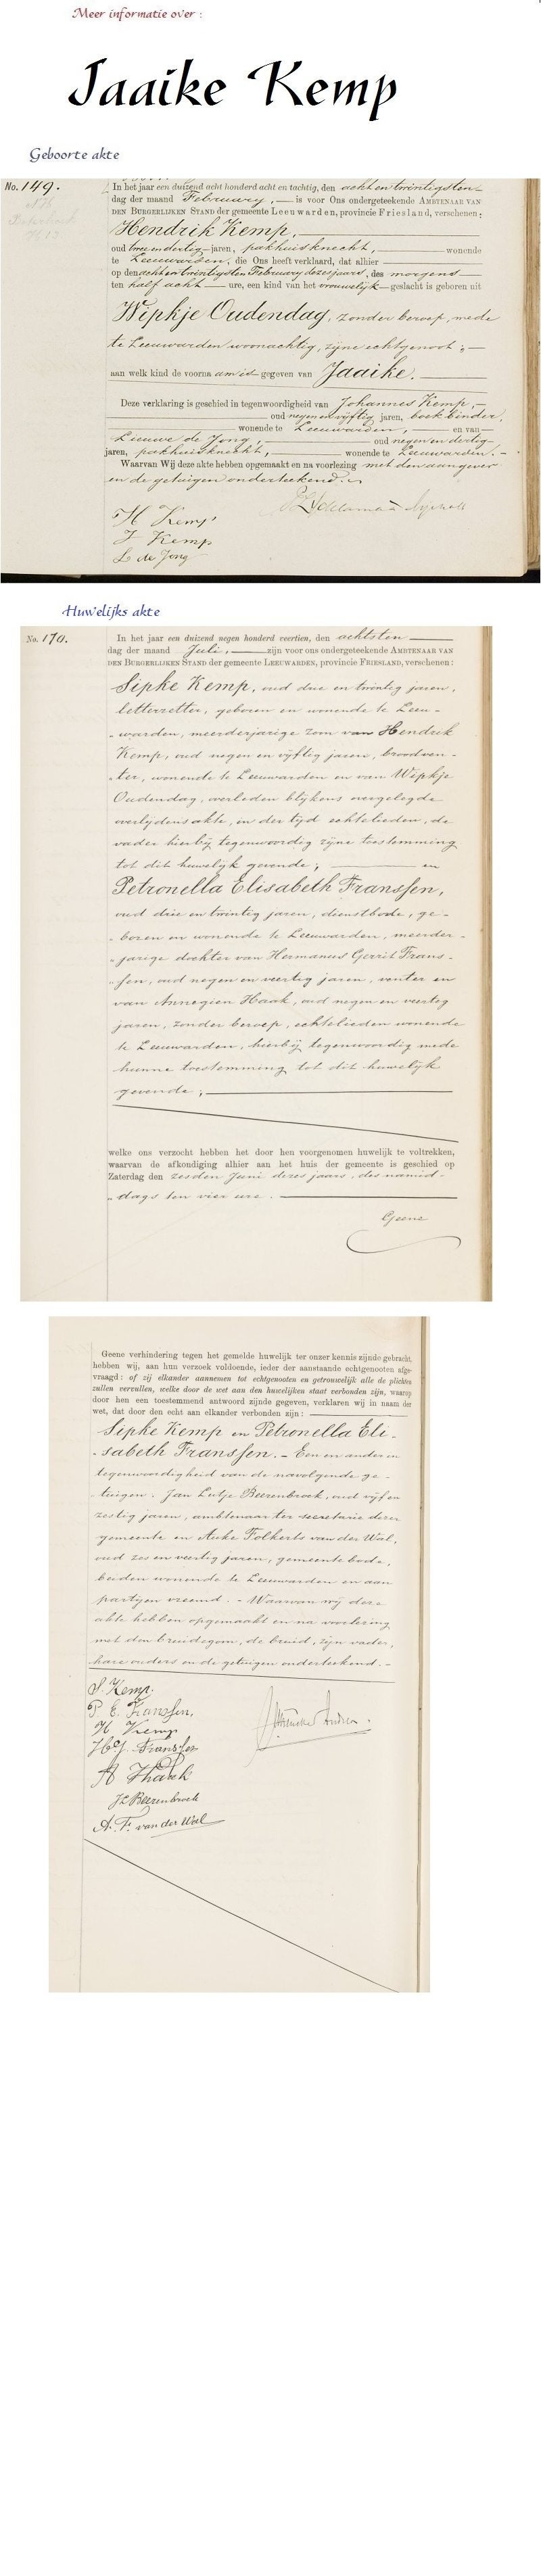 Meer informatie over :
Jaaike Kemp
Geboorte akte
No. 149.
In het jaar een duizend acht honderd acht en tachtig, den acht en twintigsten
dag der maand February, is voor Ons ondergeteekende AMBTENAAR VAN
DEN BURGERLIJKEN STAND der gemeente Leeuwarden, provincie Friesland, verschenen:
Hendrik Kemp,
oud twee en dertig jaren, pakhuisknecht, wonende
te Leeuwarden, die Ons heeft verklaard, dat alhier
op den acht en twintigsten February dezes jaars, des morgens
ten half acht ure, een kind van het vrouwelijk geslacht is geboren uit
Wipkje Oudendag, zonder beroep, mede
te Leeuwarden woonachtig, zijne echtgenoot;
aan welk kind de voornaam is gegeven van Jaaike.
Deze verklaring is geschied in tegenwoordigheid van Johannes Kemp,
oud negen en vijftig jaren, boekbinder,
wonende te Leeuwarden, en van
Lieuwe de Jong, oud negen en dertig
jaren, pakhuisknecht, wonende te Leeuwarden.
Waarvan Wij deze akte hebben opgemaakt en na voorlezing met den aangever
en de getuigen onderteekend.
H Kemp
J Kemp
L de Jong
Huwelijks akte
No. 170.
In het jaar een duizend negen honderd veertien, den achtsten
dag der maand Juli, zijn voor ons ondergeteekende AMBTENAAR VAN
DEN BURGERLIJKEN STAND der gemeente LEEUWARDEN, provincie FRIESLAND, verschenen:
Sipke Kemp, oud drie en twintig jaren,
letterzetter, geboren en wonende te Leeu-
warden, meerderjarige zoon van Hendrik
Kemp, oud negen en vijftig jaren, broodven-
ter, wonende te Leeuwarden en van Wipkje
Oudendag, overleden blijkens overgelegde
overlijdensakte, in der tijd echtelieden, de
vader hierbij tegenwoordig zijne toestemming
tot dit huwelijk gevende; en
Petronella Elisabeth Franssen,
oud drie en twintig jaren, dienstbode, ge-
boren en wonende te Leeuwarden, meerder-
jarige dochter van Hermanus Gerrit Frans-
sen, oud negen en veertig jaren, venter en
van Annegien Haak, oud negen en veertig
jaren, zonder beroep, echtelieden wonende
te Leeuwarden, hierbij tegenwoordig mede
hunne toestemming tot dit huwelijk
gevende;
welke ons verzocht hebben het door hen voorgenomen huwelijk te voltrekken,
waarvan de afkondiging alhier aan het huis der gemeente is geschied op
Zaterdag den zesden Juni dezes jaars, des namid-
dags ten vier ure.
Geene
Geene verhindering tegen het gemelde huwelijk ter onzer kennis zijnde gebracht,
hebben wij, aan hun verzoek voldoende, ieder der aanstaande echtgenooten afge-
vraagd: of zij elkander aannemen tot echtgenooten en getrouwelijk alle de plichten
zullen vervullen, welke door de wet aan den huwelijken staat verbonden zijn, waarop
door hen een toestemmend antwoord zijnde gegeven, verklaren wij in naam der
wet, dat door den echt aan elkander verbonden zijn:
Sipke Kemp en Petronella Eli-
sabeth Franssen. - Een en ander in
tegenwoordigheid van de navolgende ge-
tuigen: Jan Lutje Beerenbrock, oud vijf en
zestig jaren, ambtenaar ter secretarie dezer
gemeente en Auke Folkerts van der Wal,
oud zes en veertig jaren, gemeentebode,
beiden wonende te Leeuwarden en aan
partijen vreemd. - Waarvan wij deze
akte hebben opgemaakt en na voorlezing
met den bruidegom, de bruid, zijn vader,
hare ouders en de getuigen onderteekend. -
S. Kemp.
P. E. Franssen,
H Kemp
H.G. Franssen
A Haak
JL Beerenbrock
A. F. van der Wal